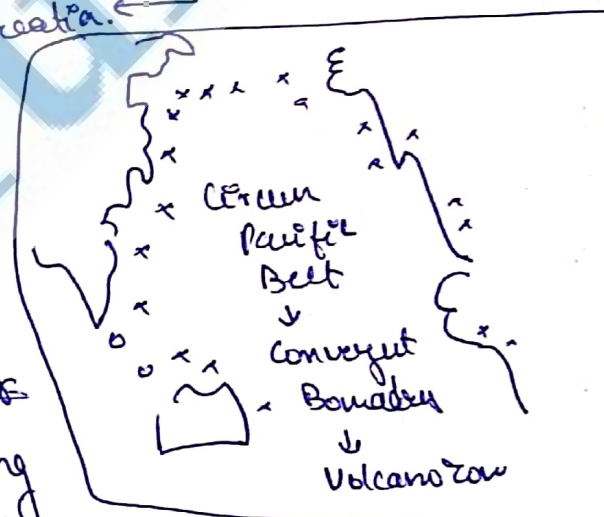 Circum
Pacific
Belt
↓
Convergent
Boundary
↓
Volcanorow
ng